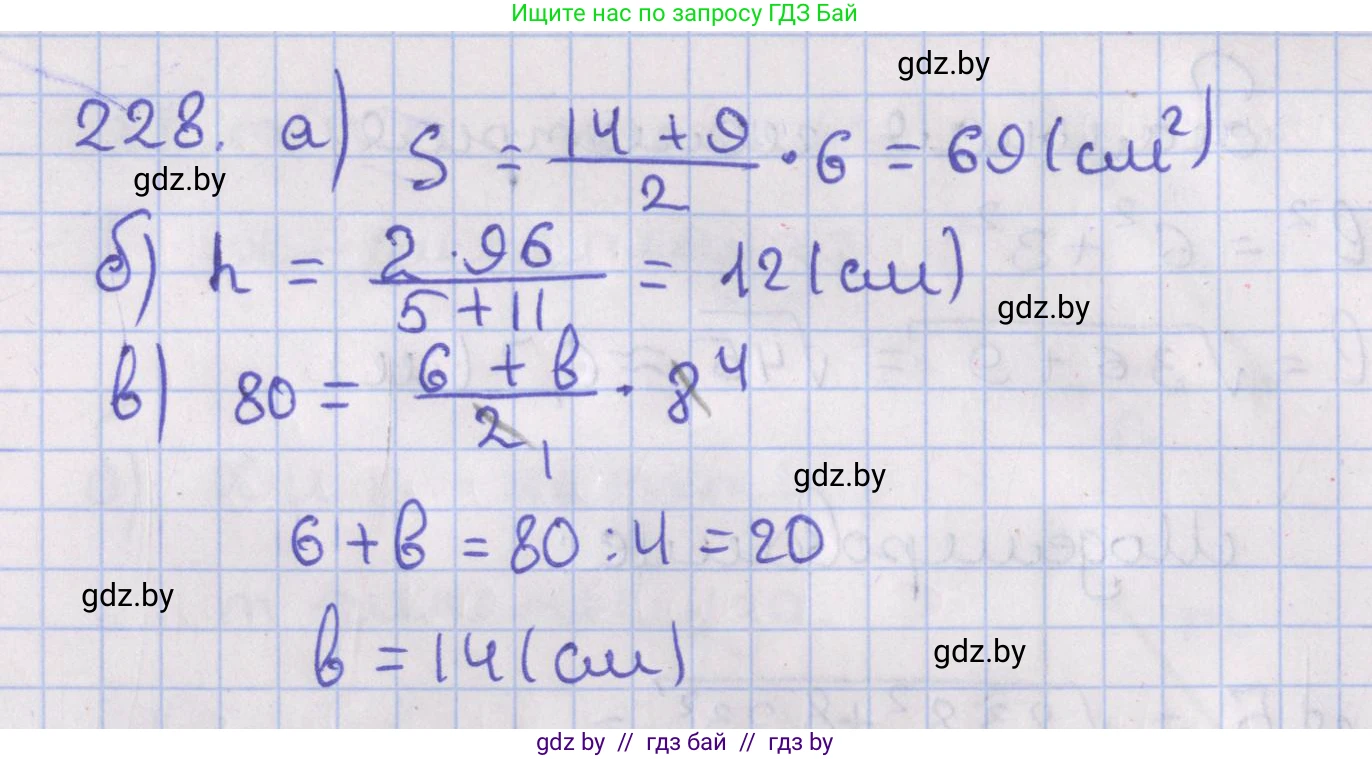 Ищите нас по запросу ГДЗ Бай
gdz.by
228. а) S = (14 + 9)/2 · 6 = 69 (см²)
gdz.by
б) h = (2 · 96)/(5 + 11) = 12 (см)
gdz.by
в) 80 = (6 + в)/2 1 · 8 4
gdz.by
6 + в = 80 : 4 = 20
gdz.by
в = 14 (см)
gdz.by
gdz by // гдз бай // гдз by